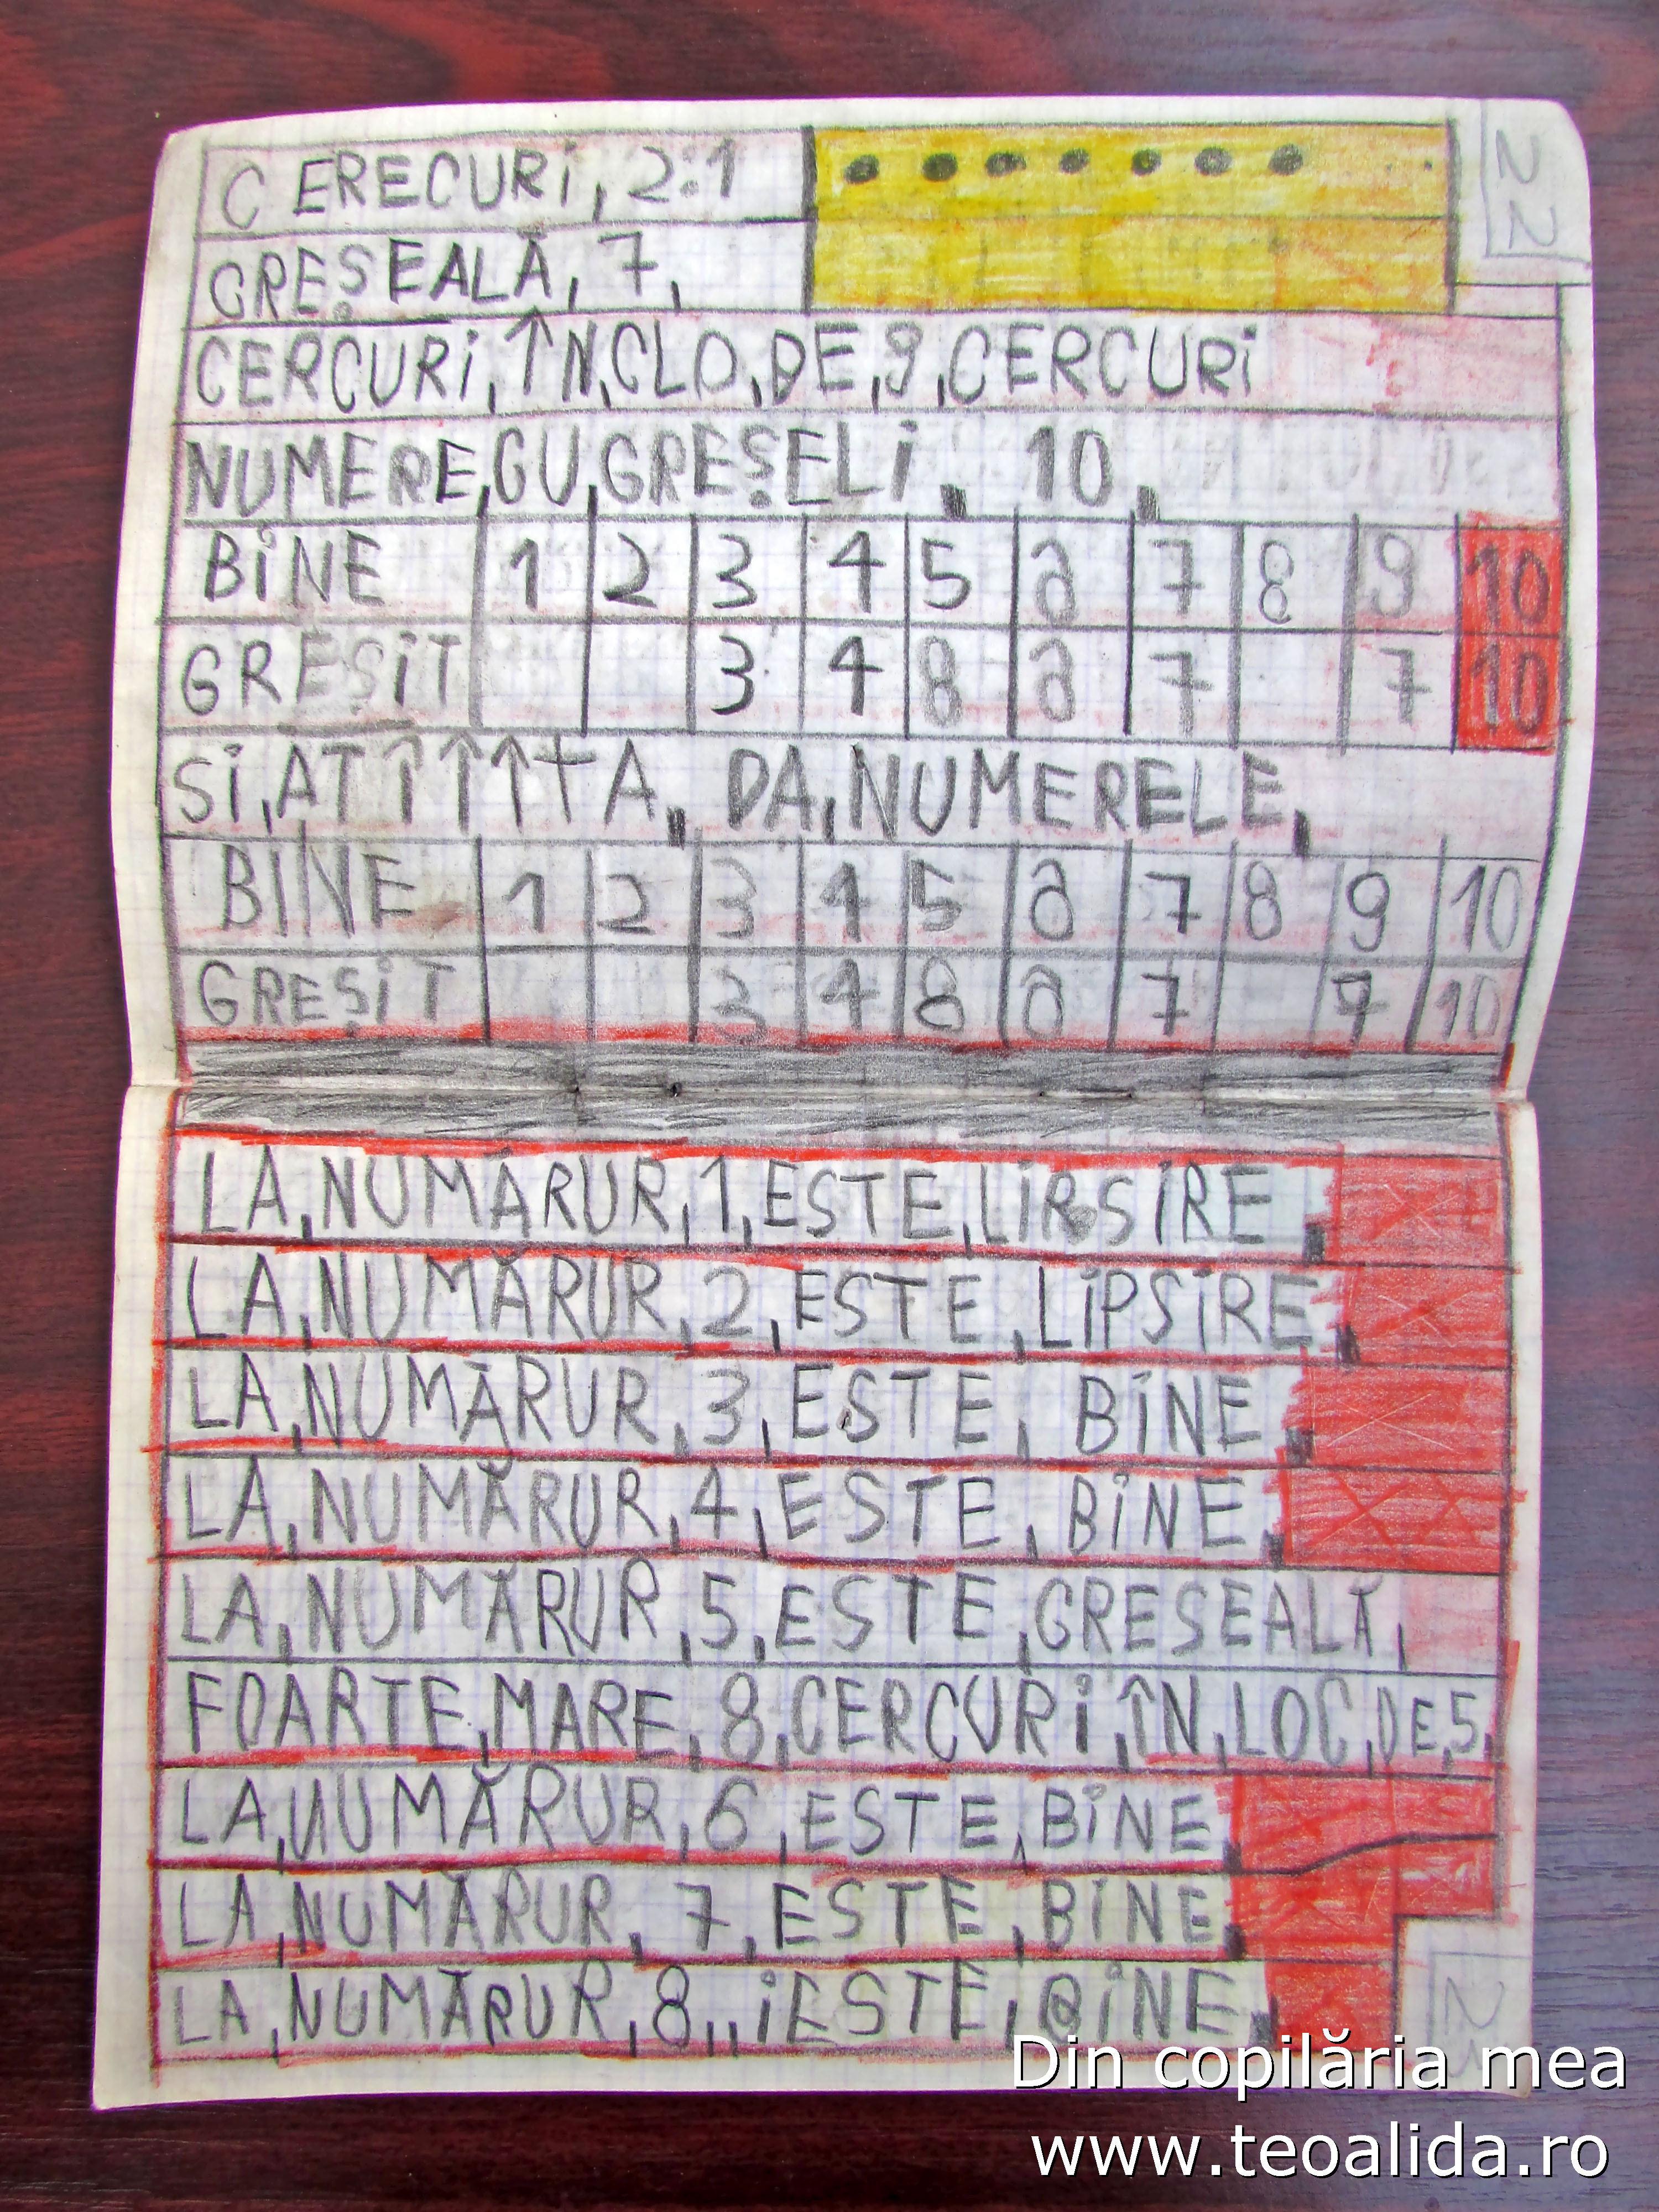 C ERECURI, 2:1
22
GREȘEALĂ, 7,
CERCURI, ÎN,CLO,DE,9,CERCURI
NUMERE,CU,GREȘELI. 10.
BINE 1 2 3 4 5 6 7 8 9 10
GREȘIT 3 4 8 6 7 7 10
SI,
DA,NUMERELE,
BINE 1 2 3 4 5 6 7 8 9 10
GREȘIT 3 4 8 6 7 7 10
LA,NUMĂRUR,1,ESTE,LIRSIRE.
LA,NUMĂRUR,2,ESTE,LIPSIRE.
LA,NUMĂRUR,3,ESTE, BINE.
LA,NUMĂRUR,4,ESTE, BINE.
LA,NUMĂRUR,5,ESTE,GRESEALĂ,
FOARTE,MARE,8,CERCURI,ÎN,LOC,DE,5.
LA,NUMĂRUR,6,ESTE,BINE.
LA,NUMĂRUR, 7,ESTE,BINE.
LA,NUMĂRUR,8,,iESTE,BINE.
Din copilăria mea
www.teoalida.ro